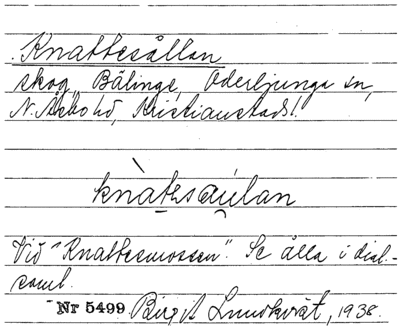 Knattesållan
skog, Bälinge, Oderljunga sn,
N. Åsbo hd, Kristianstads l.
knàtesau̯lan
Vid "Knattesmossen". Se ålla i dial.-
saml.
Nr 5499 Birgit Lundkvist, 1938.